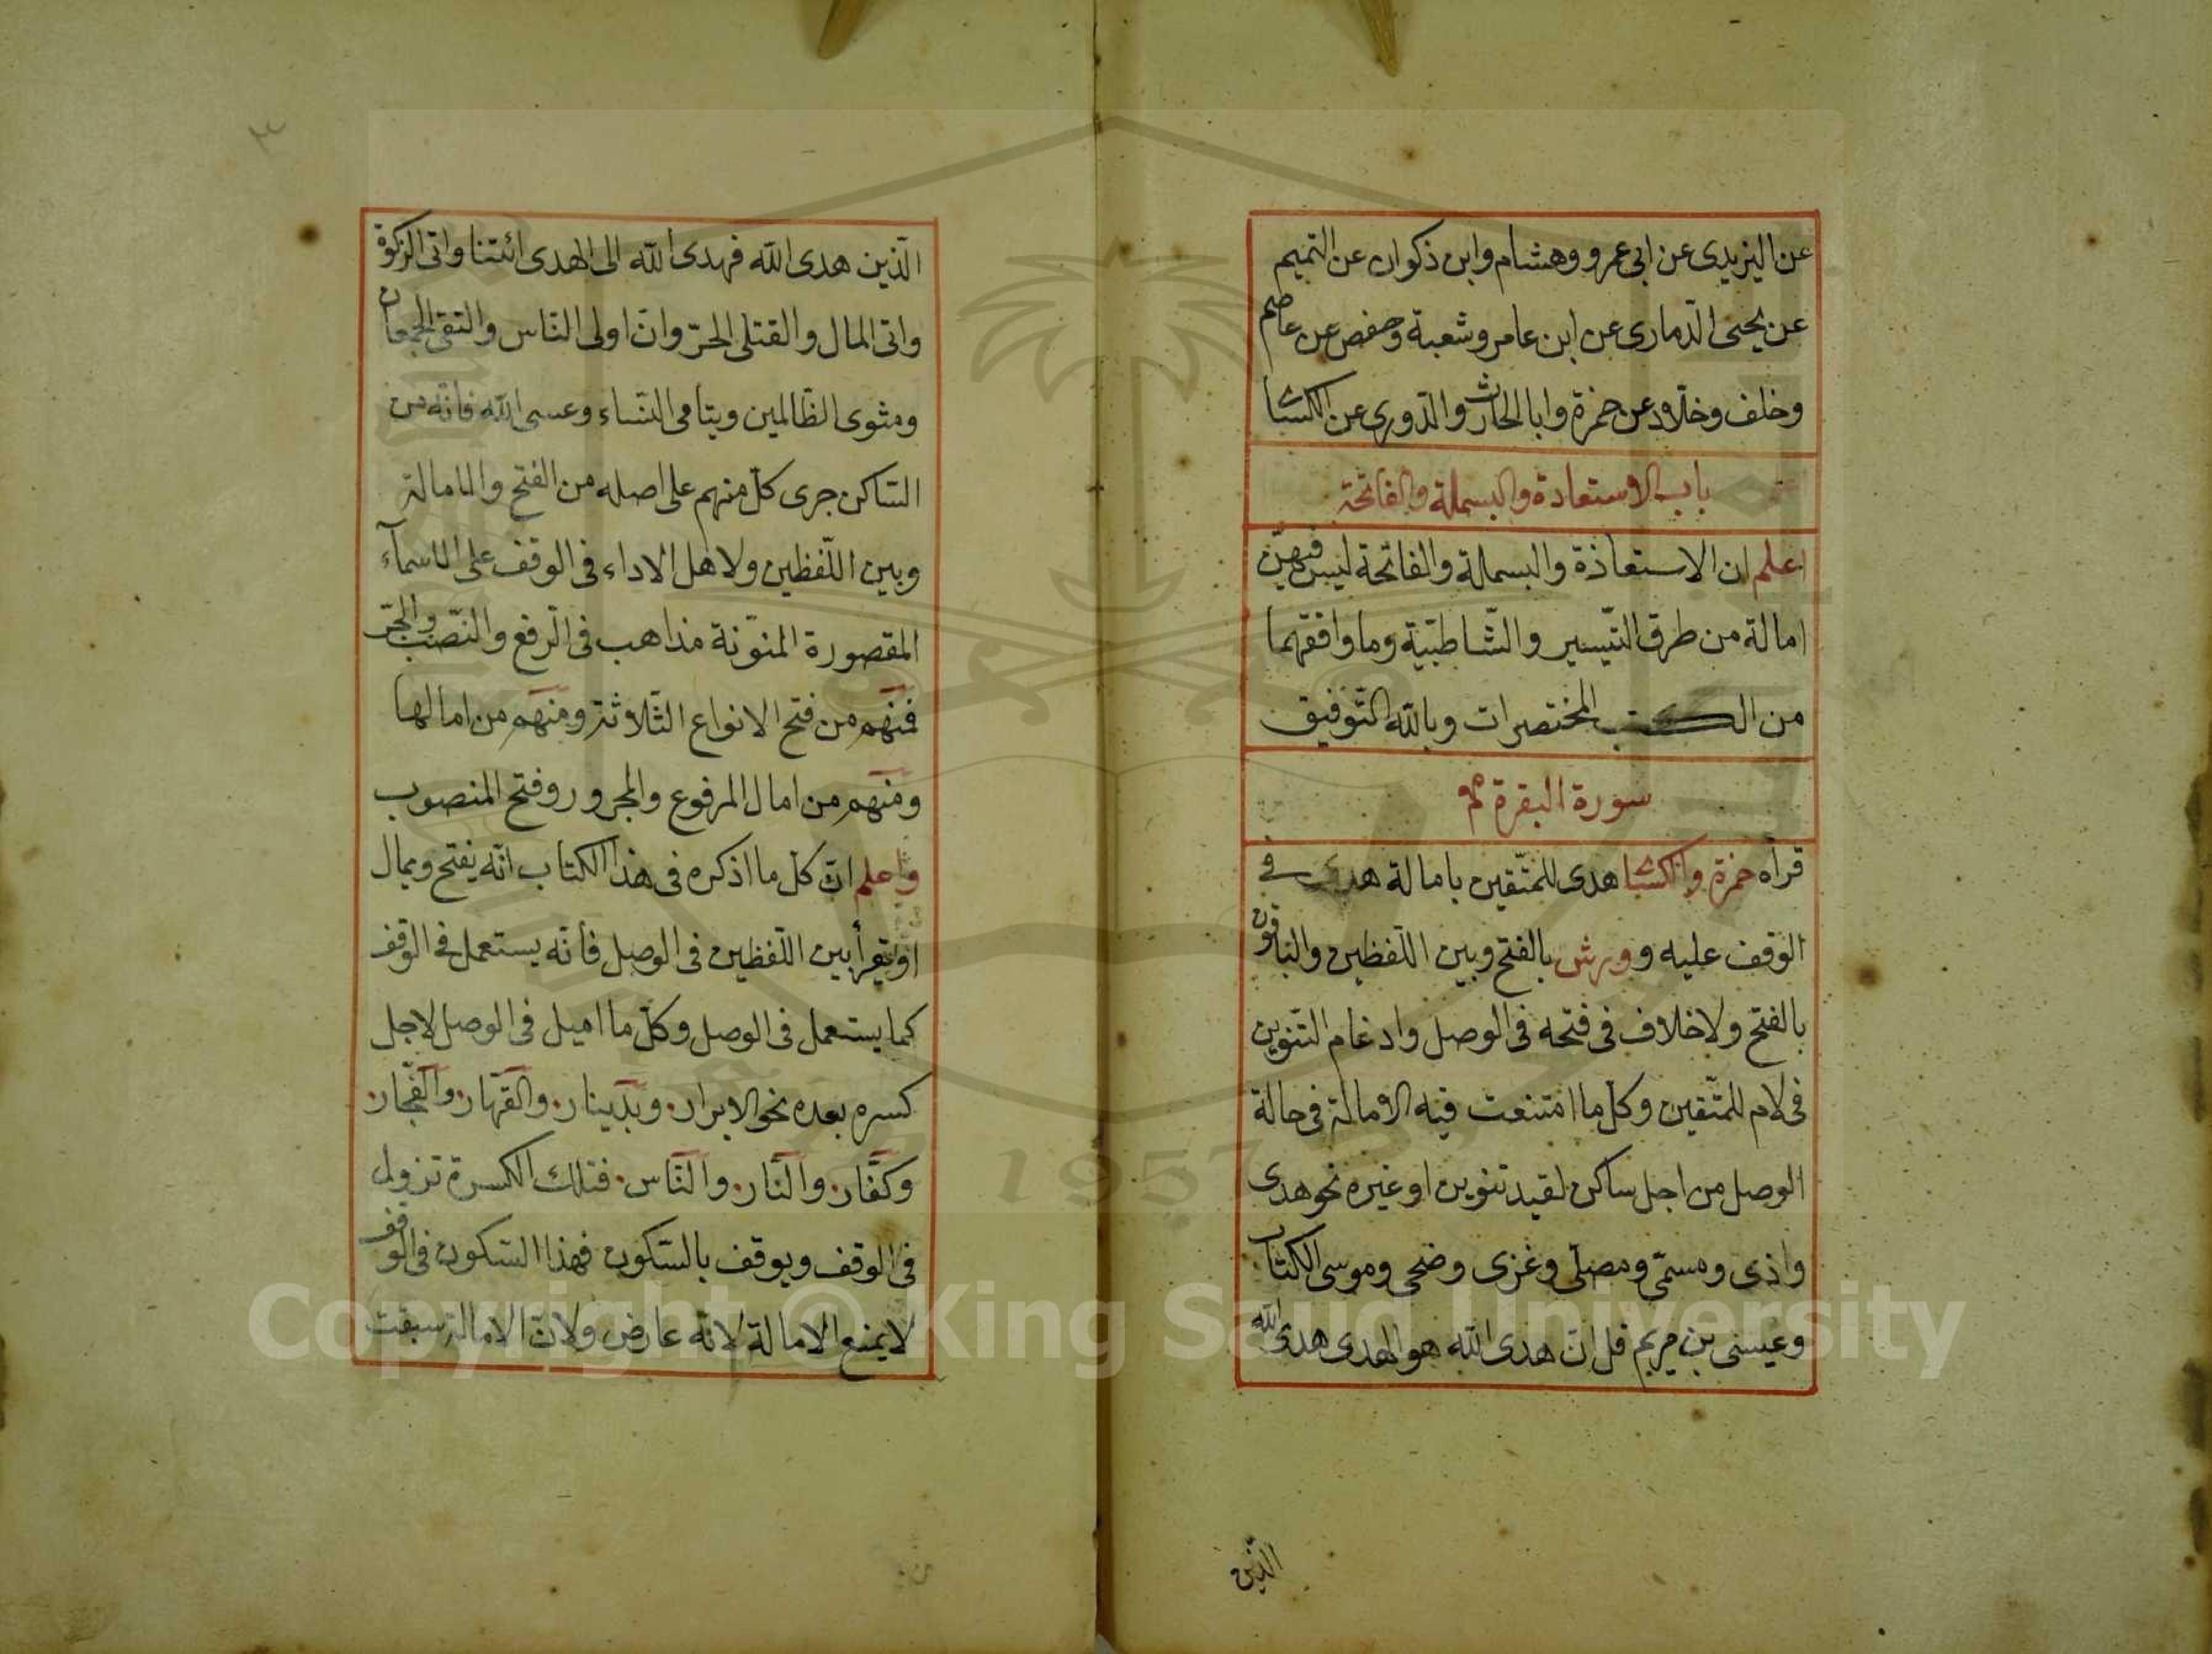 عن اليزيدى عن ابى عمرو وهشام وابن ذكوان عن التميم
عن يحيى الذمارى عن ابن عامر وشعبة وحفص عن عاصم
وخلف وخلّاد عن حمزة وابا الحارث والدّورى عن الكسائ
باب الاستعاذة والبسملة والفاتحة
اعلم ان الاستعاذة والبسملة والفاتحة ليس فيهنّ
امالة من طرق التّيسير والشّاطبيّة وما وافقهما
من الكتب المختصرات وبالله التّوفيق
سورة البقرة
قرأه حمزة والكسائ هدى للمتّقين بامالة هدى فى
الوقف عليه وورش بالفتح وبين اللّفظين والباقون
بالفتح ولاخلاف فى فتحه فى الوصل وادغام التّنوين
فى لام للمتّقين وكلّ ما امتنعت فيه الامالة فى حالة
الوصل من اجل ساكن لقيه تنوين او غيره نحو هدى
واذى ومسمّى ومصلّى وغزى وضحى وموسى الكتاب
وعيسى بن مريم قل انّ هدى الله هو الهدى هدى الله
الّذين
٣
الّذين هدى الله فهدى الله الى الهدى ائتنا واتى الزكوة
واتى المال والقتلى الحرّ وانّ اولى النّاس والتقى الجمعان
ومثوى الظّالمين ويتامى النّساء وعسى الله فانّه من
السّاكن جرى كلّ منهم على اصله من الفتح والامالة
وبين اللّفظين ولاهل الاداء فى الوقف على الاسمآء
المقصورة المنوّنة مذاهب فى الرّفع والنّصب والجرّ
فمنهم من فتح الانواع الثّلاثة ومنهم من امالها
ومنهم من امال المرفوع والمجرور وفتح المنصوب
واعلم انّ كلّ ما اذكره فى هذا الكتاب انّه يفتح ويمال
او يقرأ بين اللّفظين فى الوصل فانّه يستعمل فى الوقف
كما يستعمل فى الوصل وكلّ ما اميل فى الوصل لاجل
كسره بعده نحو الابرار وبدينار والقهّار والفجّار
وكفّار والنّار والنّاس فتلك الكسرة تزول
فى الوقف ويوقف بالسّكون فهذا السّكون فى الوقف
لا يمنع الامالة لانّه عارض ولانّ الامالة سبقت
Copyright © King Saud University
1957